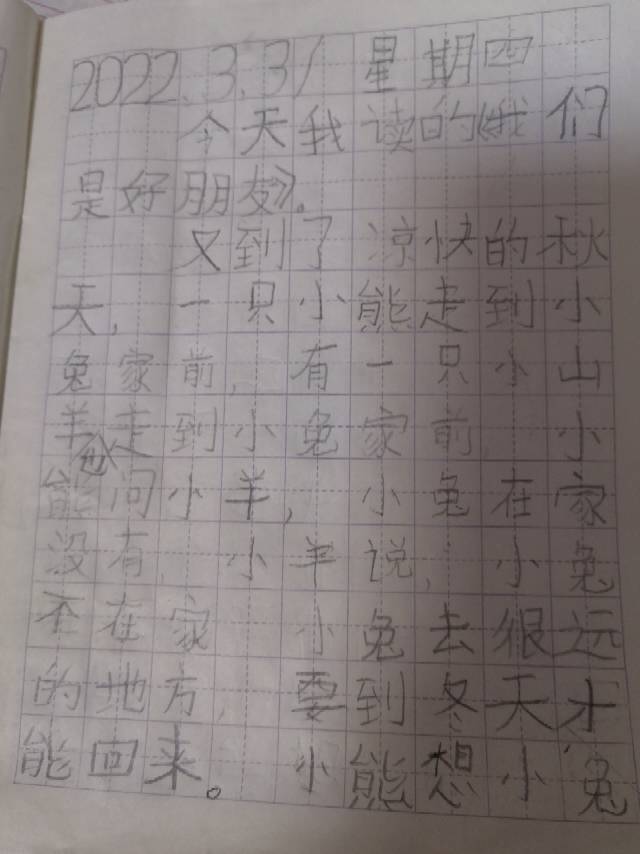 2022.3.31 星期四
今天我读的《我们
是好朋友》。
又到了凉快的秋
天,一只小能走到小
兔家前,有一只小山
羊也走到小兔家前 小
能问小羊,小兔在家
没有,小羊说,小兔
不在家 小兔去很远
的地方,要到冬天才
能回来。小熊想小兔